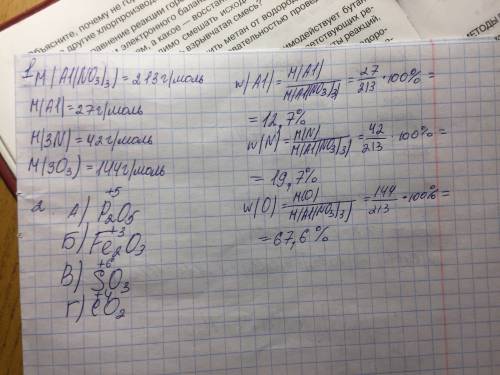 объясните, почему не го
другие хлорпроизво
равнение реакции гор
электронного балан
а какое — восстано
димо смешать исход
взрывчатая смесь?
ить метан от водоро
овательностью прове
имодействует бутан
ответствующих ре-
еты реакций,
МЕТОДЫ
1
M(Al(NO3)3) = 213г/моль
M(Al) = 27г/моль
M(3N) = 42г/моль
M(9O3) = 144г/моль
w(Al) = M(Al) / M(Al(NO3)3) = 27/213 · 100% =
= 12,7%
w(N) = M(N) / M(Al(NO3)3) = 42/213 · 100% =
= 19,7%
w(O) = M(O) / M(Al(NO3)3) = 144/213 · 100% =
= 67,6%
2.
+5
А) P2O5
+3
Б) Fe2O3
+6
В) SO3
+4
Г) CO2